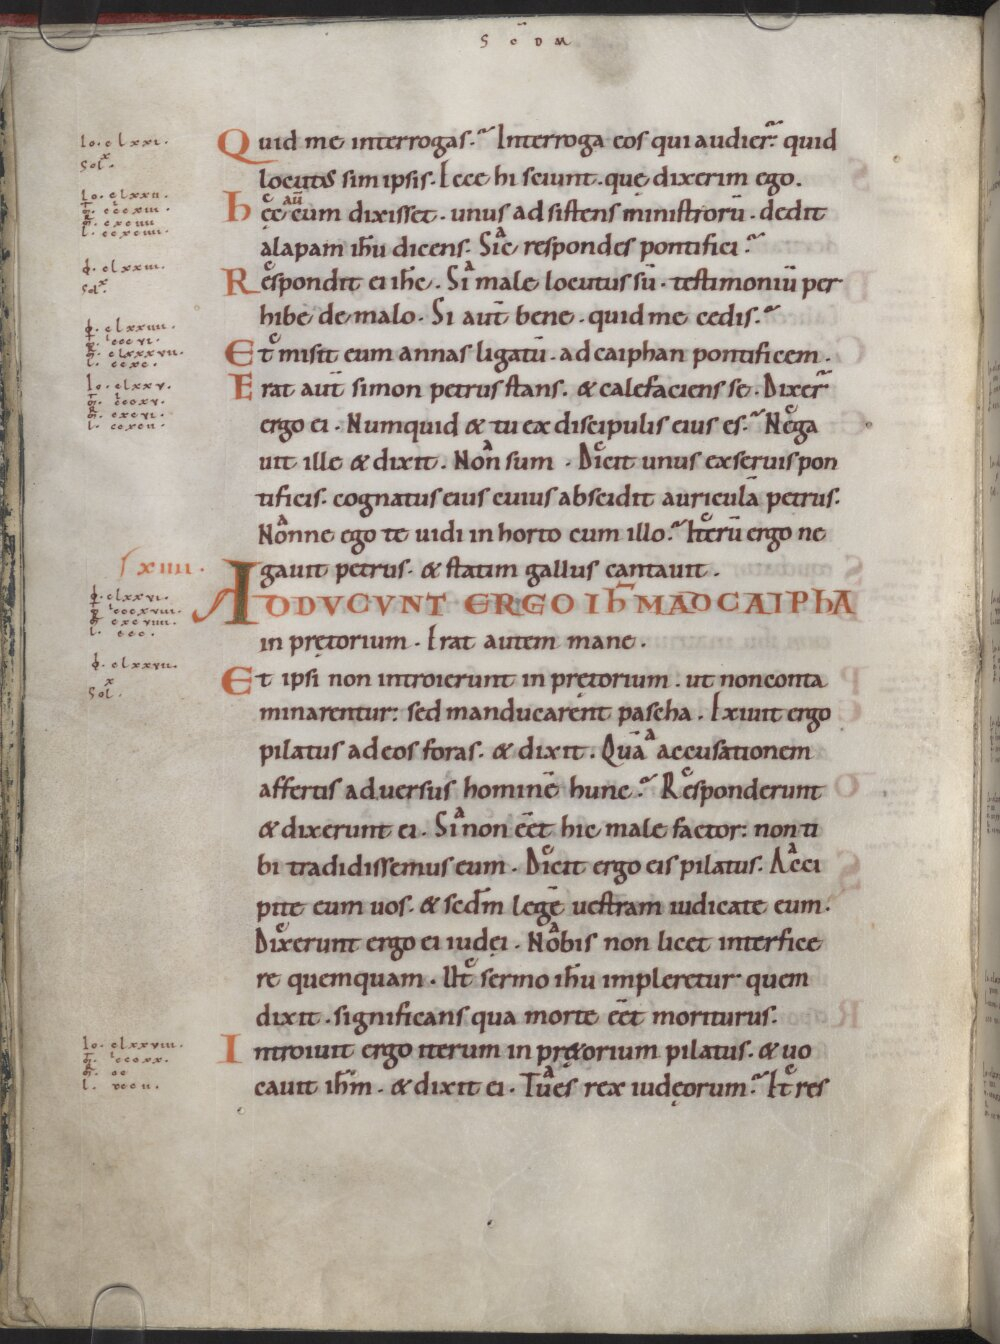 SCDM
Io. clxxi.
Sol.
Quid me interrogas. Interroga eos qui audier̄ quid
locutus sim ipsis. Ecce hi sciunt. quę dixerim ego.
Io. clxxii.
hęc aū cum dixisset. unus adsistens ministrorū. dedit
alapam ihu dicens. Sic respondes pontifici.
Io. clxxiii.
Sol.
Respondit ei ihc. Si male locutus sū. testimoniū per
hibe de malo. Si aut bene. quid me cedis.
Io. clxxiiii.
Et misit eum annas ligatū. ad caiphan pontificem.
Io. clxxv.
Erat aut simon petrus stans. & calefaciens se. Dixer̄
ergo ei. Numquid & tu ex discipulis eius es. Nega
uit ille & dixit. Non sum. Dicit unus ex seruis pon
tificis. cognatus eius cuius abscidit auriculā petrus.
Nonne ego te uidi in horto cum illo. Iterū ergo ne
gauit petrus. & statim gallus cantauit.
xiiii.
Io. clxxvi.
ADDVCVNT ERGO IHM AD CAIPHA
in pretorium. Erat autem mane.
Io. clxxvii.
Sol.
Et ipsi non introierunt in pretorium. ut non conta
minarentur: sed manducarent pascha. Exiuit ergo
pilatus ad eos foras. & dixit. Quā accusationem
affertis aduersus hominē hunc. Responderunt
& dixerunt ei. Si non eēt hic malefactor: non ti
bi tradidissemus eum. Dicit ergo eis pilatus. Acci
pite eum uos. & sedm legē uestram iudicate eum.
Dixerunt ergo ei iudęi. Nobis non licet interfice
re quemquam. Ut sermo ihu impleretur quem
dixit. significans qua morte eēt moriturus.
Io. clxxviii.
Introiuit ergo iterum in pretorium pilatus. & uo
cauit ihm. & dixit ei. Tu es rex iudęorum. Et res